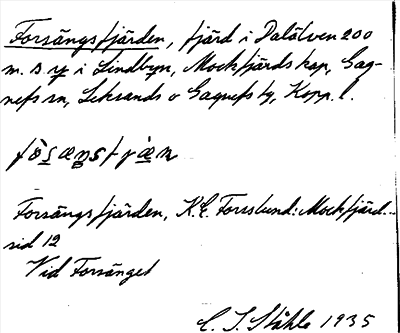 Forsängsfjärden, fjärd i Dalälven 200
m. s. i Lindbyn, Mockfjärds kap, Gag-
nefs sn, Leksands o Gagnefs tg, Kopp. l.
Forsängsfjärden, K. E. Forsslund: Mockfjärd..
sid 12
Vid Forsänget
C. I. Ståhle 1935